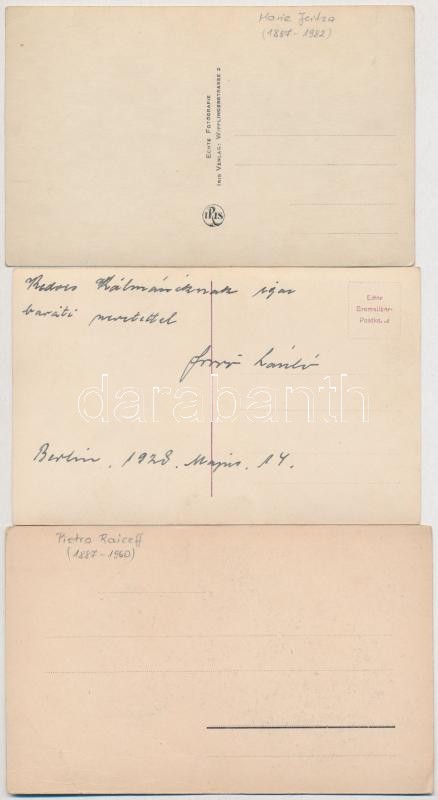 Marie Jeritza
(1887-1982)
ECHTE FOTOGRAFIE
IRIS VERLAG: WIPPLINGERSTRASSE 2
IRIS
Kedves Kálmánéknak igaz
baráti szeretettel
László
Echte
Bromsilber-
Postkarte
darabanth
Berlin, 1928. Május. 14.
Pietro Raiceff
(1887-1960)